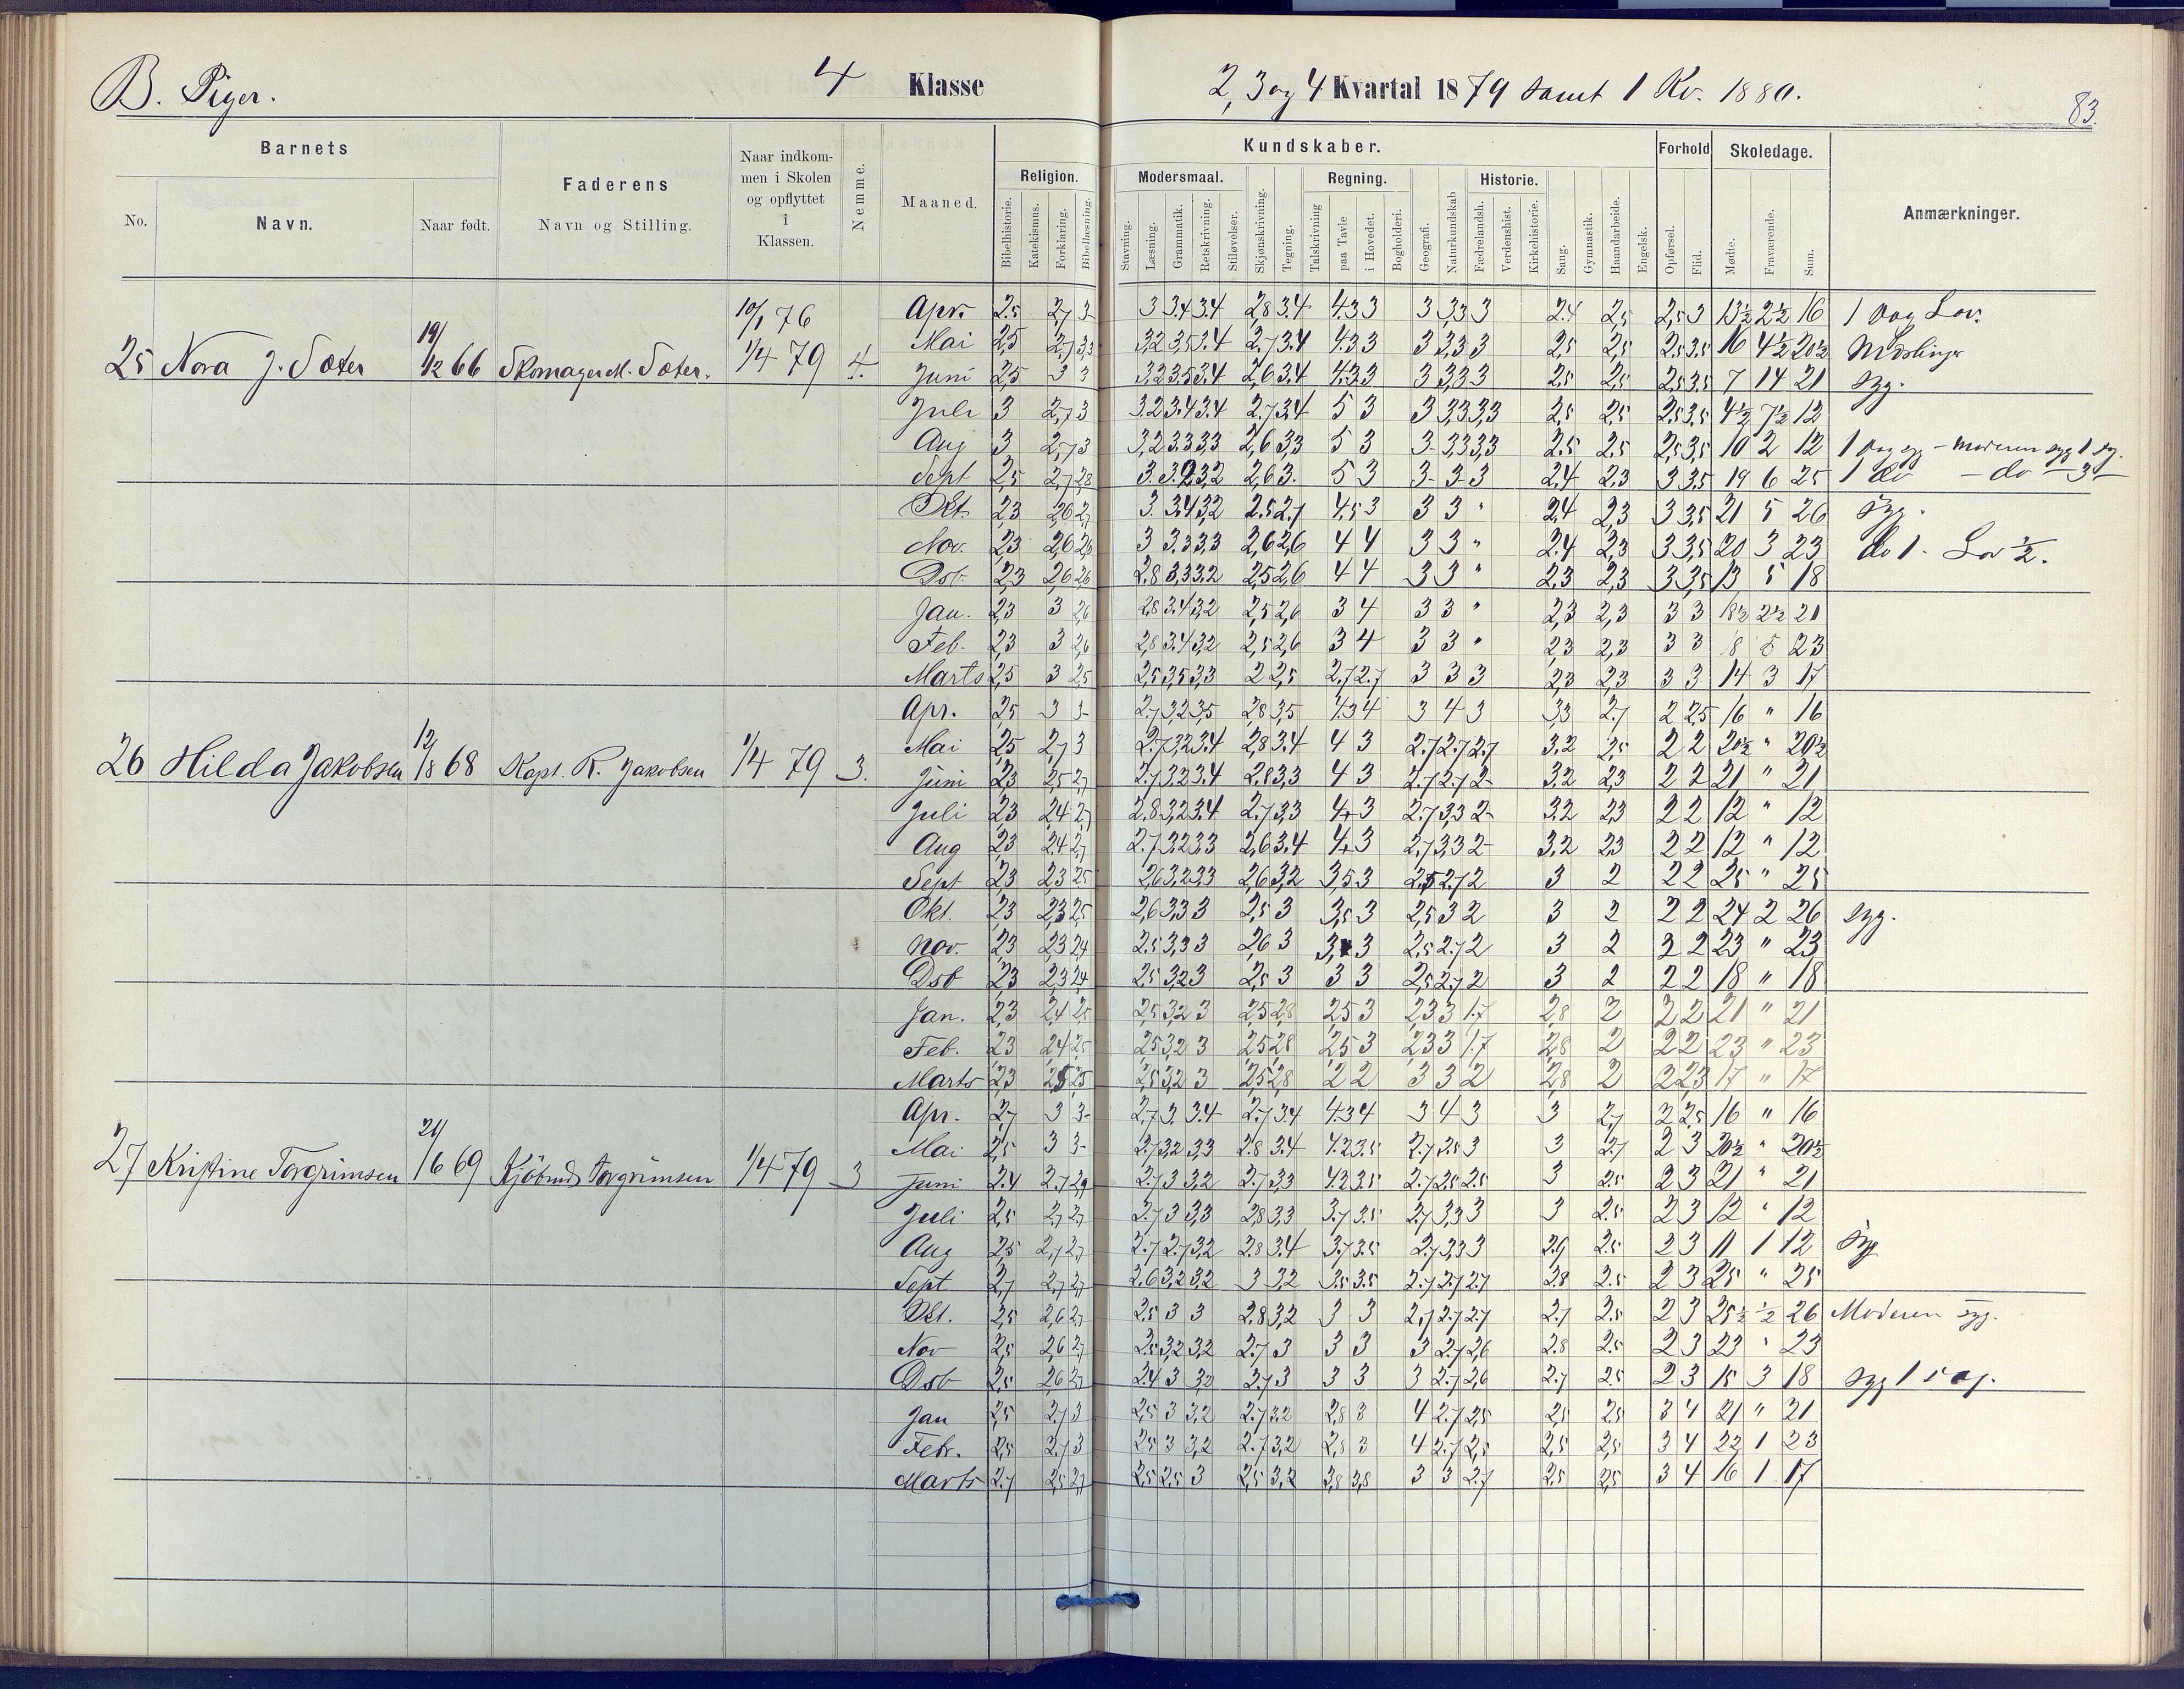 B. Piger.
4 Klasse
2, 3 og 4 Kvartal 1879 samt 1 Kv. 1880.
83.
Barnets
No.
Navn.
Naar født.
Faderens
Navn og Stilling.
Naar indkommen i Skolen og opflyttet i Klassen.
Nemme.
Maaned.
Kundskaber.
Religion.
Bibelhistorie.
Katekismus.
Forklaring.
Bibellæsning.
Modersmaal.
Stavning.
Læsning.
Grammatik.
Retskrivning.
Stiløvelser.
Skjønskrivning.
Tegning.
Regning.
Talskrivning
paa Tavle
i Hovedet.
Bogholderi.
Geografi.
Naturkundskab
Historie.
Fædrelandsh.
Verdenshist.
Kirkehistorie.
Sang.
Gymnastik.
Haandarbeide.
Engelsk.
Forhold
Opførsel.
Flid.
Skoledage.
Mødte.
Fraværende.
Sum.
Anmærkninger.
25 Nora J. Sæter 19/12 66 Skomager M. Sæter. 10/1 76 1/4 79 4.
Apr. 2.5 2,7 3 3 3.4 3.4 2,8 3.4 4.3 3 3 3,3 3 2.4 2,5 2,5 3 13½ 2½ 16 1 Dag Lov.
Mai 2,5 2,7 3,3 3,2 3,5 3.4 2.7 3.4 4.3 3 3 3,3 3 2,5 2,5 2,5 3,5 16 4½ 20½ Mæslinger
Juni 2,5 3 3 3,2 3.5 3.4 2,6 3.4 4.3 3 3 3,3 3 2,5 2,5 2,5 3,5 7 14 21 syg.
Juli 3 2,7 3 3.2 3.4 3.4 2.7 3.4 5 3 3 3,3 3,3 2,5 2,5 2,5 3,5 4½ 7½ 12
Aug 3 2,7 3 3,2 3.3 3.3 2,6 3,3 5 3 3 3,3 3,3 2.5 2.5 2,5 3,5 10 2 12 1 Dag syg - Moderen syg 1
Sept 2,5 2,7 2,8 3. 3.2 3,2 2,6 3. 5 3 3 3 3 2,4 2,3 3 3,5 19 6 25 1 do - do - 3
Okt. 2,3 2,6 2,7 3. 3.4 3,2 2.5 2.7 4.5 3 3 3 " 2,4 2,3 3 3,5 21 5 26 syg.
Nov. 2,3 2,6 2,6 3 3.3 3.3 2,6 2,6 4 4 3 3 " 2.4 2,3 3 3,5 20 3 23 do 1. Lov ½.
Dsb. 2,3 2,6 2,6 2.8 3,3 3.2 2,5 2,6 4 4 3 3 " 2,3 2,3 3 3,5 13 5 18
Jan. 2,3 3 2,6 2,8 3.4 3,2 2,5 2,6 3 4 3 3 " 2,3 2,3 3 3 18½ 2½ 21
Feb. 2,3 3 2,6 2,8 3.4 3,2 2,5 2,6 3 4 3 3 " 2,3 2,3 3 3 18 5 23
Marts 2,5 3 2,5 2,5 3,5 3,3 2 2,5 2,7 2.7 3 3 3 2,3 2,3 3 3 14 3 17
26 Hilda Jakobsen 12/8 68 Kapt. R. Jakobsen 1/4 79 3.
Apr. 2,5 3 3 2.7 3,2 3,5 2,8 3,5 4.3 4 3 4 3 3,3 2.7 2 2,5 16 " 16
Mai 2,5 2,7 3 2.7 3,2 3.4 2,8 3.4 4 3 2.7 2.7 2.7 3.2 2,5 2 2 20½ " 20½
Juni 2,3 2,5 2,7 2.7 3.2 3.4 2.8 3,3 4 3 2.7 2.7 2 3,2 2,3 2 2 21 " 21
Juli 2,3 2,4 2,7 2.8 3,2 3.4 2.7 3,3 4 3 2.7 3,3 2 3,2 2,3 2 2 12 " 12
Aug 2,3 2.4 2,7 2.7 3.2 3,3 2,6 3.4 4 3 2,7 3,3 2 3,2 2,3 2 2 12 " 12
Sept 2,3 2,3 2,5 2,6 3,2 3,3 2,6 3,2 3,5 3 2,5 2.7 2 3 2 2 2 25 " 25
Okt. 2,3 2,3 2,5 2,6 3,3 3 2,5 3 3,5 3 2,5 3 2 3 2 2 2 24 2 26 syg.
Nov. 2,3 2,3 2,4 2.5 3,3 3 2,6 3 3 2,5 2.7 2 3 2 2 2 23 " 23
Dsb 2,3 2,3 2,4 2,5 3,2 3 2,5 3 3 3 2,5 2,7 2 3 2 2 2 18 " 18
Jan. 2,3 2,4 2,5 2,5 3,2 3 2,5 2,8 2,5 3 2,3 3 1.7 2,8 2 2 2 21 " 21
Feb. 2,3 2,4 2,5 2,5 3,2 3 2,5 2,8 2,5 3 2,3 3 1.7 2,8 2 2 2 23 " 23
Marts 2,3 2,5 2,5 2,5 3,2 3 2,5 2,8 2 2 3 3 2 2,8 2 2 2,3 17 " 17
27 Kristine Torgrimsen 21/6 69 Kjöbmd Torgrimsen 1/4 79 3
Apr. 2,7 3 3 2,7 3. 3.4 2.7 3.4 4.3 4 3 4 3 3 2,7 2 2,5 16 " 16
Mai 2,5 3 3 2.7 3,2 3,3 2.8 3.4 4.2 3.5 2.7 2.5 3 3 2,7 2 3 20½ " 20½
Juni 2.4 2.7 2,9 2.7 3 3.2 2.7 3,3 4.2 3.5 2.7 2,5 2.5 3 2.5 2 3 21 " 21
Juli 2,5 2,7 2,7 2.7 3 3,3 2,8 3,3 3.7 3.5 2,7 3,3 3 3 2.5 2 3 12 " 12
Aug 2,5 2,7 2,7 2.7 2.7 3,2 2.8 3.4 3.7 3.5 2.7 3,3 3 2.9 2.5 2 3 11 1 12 syg
Sept 2,7 2,7 2,7 2.6 3,2 3,2 3 3,2 3.5 3.5 2.7 2.7 2.7 2.8 2.5 2 3 25 " 25
Okt. 2,5 2,6 2,7 2.5 3 3 2.8 3,2 3 3 2,7 2.7 2.7 2.7 2.5 2 3 25½ ½ 26 Moderen syg.
Nov 2,5 2,6 2,7 2.5 3,2 3,2 2.7 3 3 3 3 2.7 2,6 2.8 2.5 2 3 23 " 23
Dsb 2,5 2,6 2,7 2.4 3 3,2 2.7 3 3 3 3 2.7 2,6 2.7 2.5 2 3 15 3 18 syg 1
Jan 2,5 2.7 3 2,5 3 3.2 2.7 3.2 2,8 3 4 2.7 2,5 2,5 2,5 3 4 21 " 21
Febr. 2,5 2.7 3 2,5 3 3,2 2.7 3,2 2,8 3 4 2.7 2,5 2,5 2,5 3 4 22 1 23
Marts 2.7 2,5 2,7 2,5 2,5 3 2,5 3,2 3,8 3,8 3 3 2.7 2,5 2,5 3 4 16 1 17